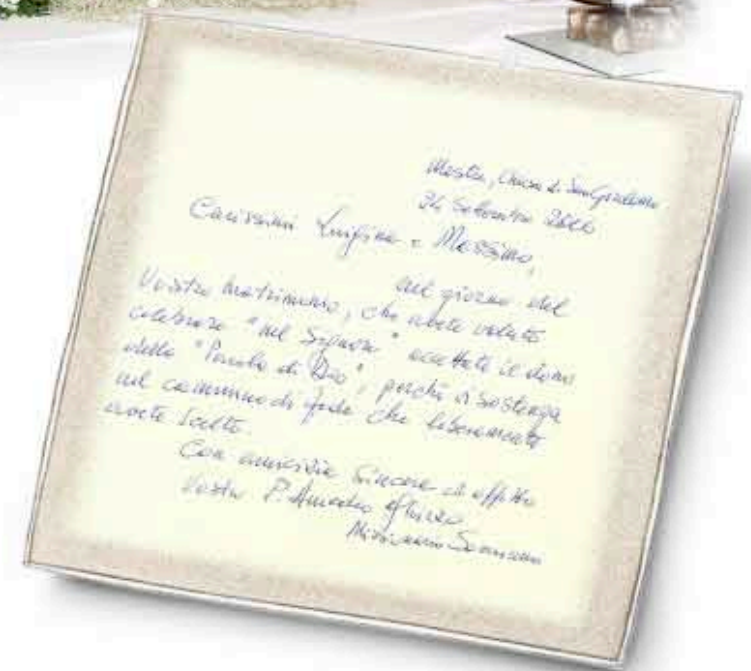 Mestre, Chiesa di San Girolamo
24 Settembre 2000
Carissimi Luigina e Massimo,
nel giorno del
Vostro matrimonio, che avete voluto
celebrare "nel Signore" accettate il dono
della "Parola di Dio", perché vi sostenga
nel cammino di fede che liberamente
avete scelto.
Con amicizia sincera ed affetto
Vostro P. Amedeo
Missionario